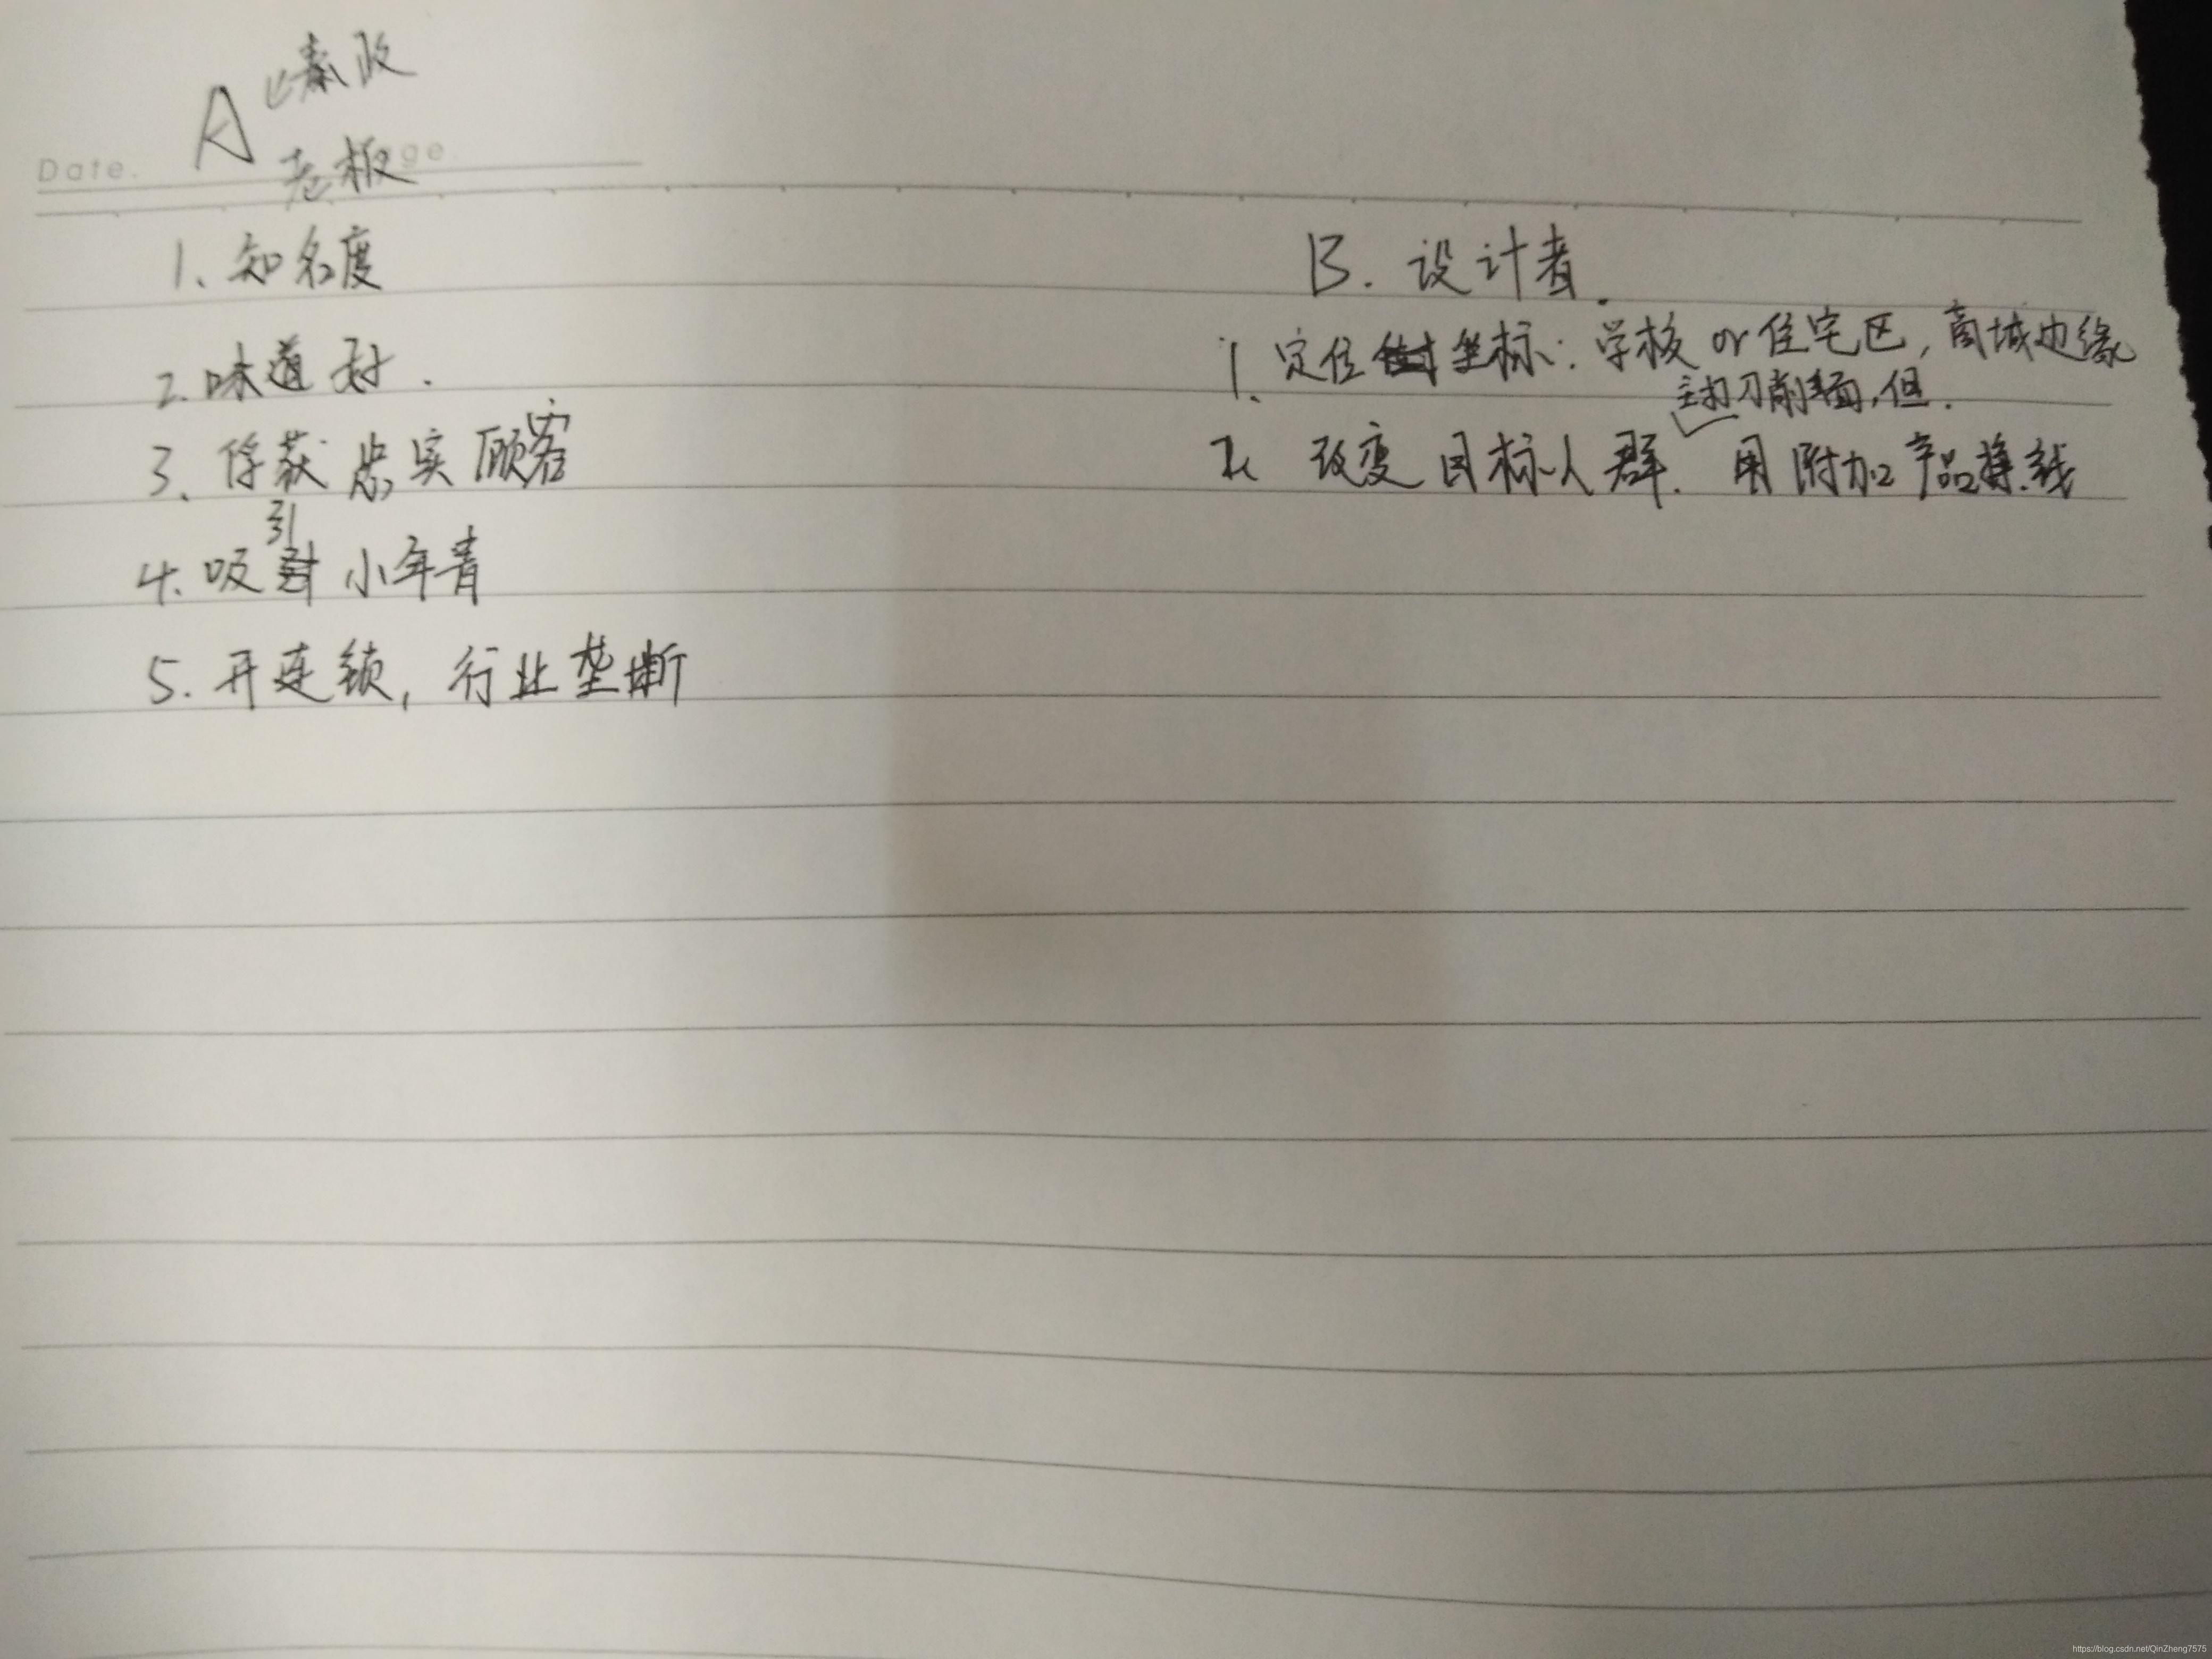 A
秦政
老板
Date.
ge.
1、知名度
2. 味道好.
3、俘获忠实顾客
4. 吸引小年青
5. 开连锁, 行业垄断
B. 设计者.
1. 定位坐标: 学校 or 住宅区, 商城边缘
主打刀削面, 但.
2. 改变目标人群. 用附加产品挣钱
https://blog.csdn.net/QinZheng7575